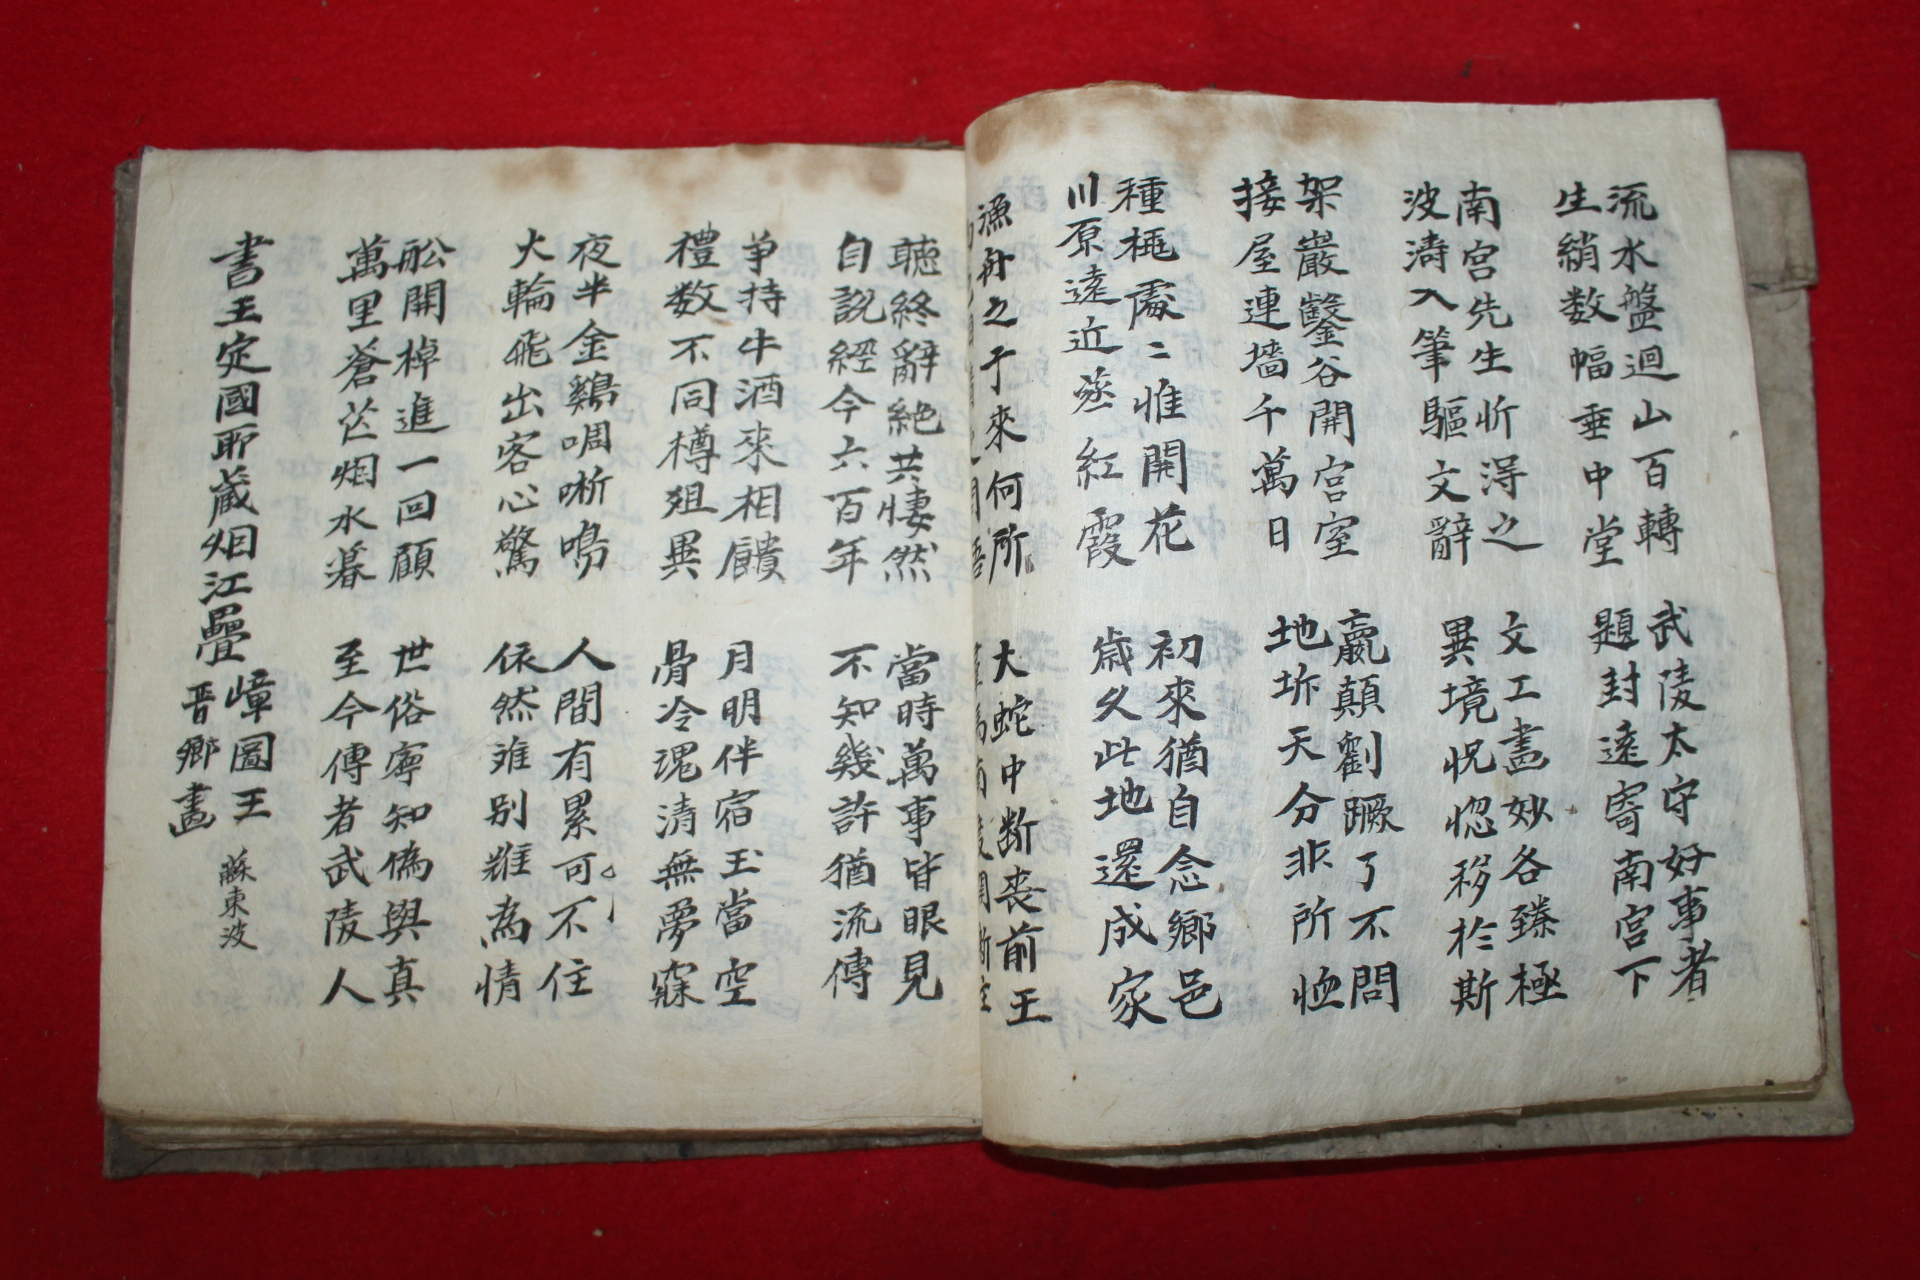 流水盤迴山百轉
生綃数幅垂中堂
武陵太守好事者
題封遠寄南宮下
南宮先生忻淂之
波濤入筆驅文辭
文工畵妙各臻極
異境怳惚移於斯
架巖鑿谷開宮室
接屋連墻千萬日
嬴顛劉蹶了不問
地坼天分非所恤
種桃處〻惟開花
川原遠近烝紅霞
初來猶自念鄉邑
歲久此地還成家
漁舟之于來何所
大蛇中断丧前王
聽終辭絶共悽然
自說經今六百年
當時萬事皆眼見
不知幾許猶流傳
爭持牛酒來相饋
禮数不同樽爼異
月明伴宿玉當空
骨冷魂清無夢寐
夜半金鷄啁哳鳴
火輪飛出客心驚
人間有累可不住
依然離别難為情
舩開棹進一回顧
萬里蒼茫烟水暮
世俗寧知僞與真
至今傳者武陵人
書王定國所藏烟江疊嶂圖王
晋鄉畵
蘇東波